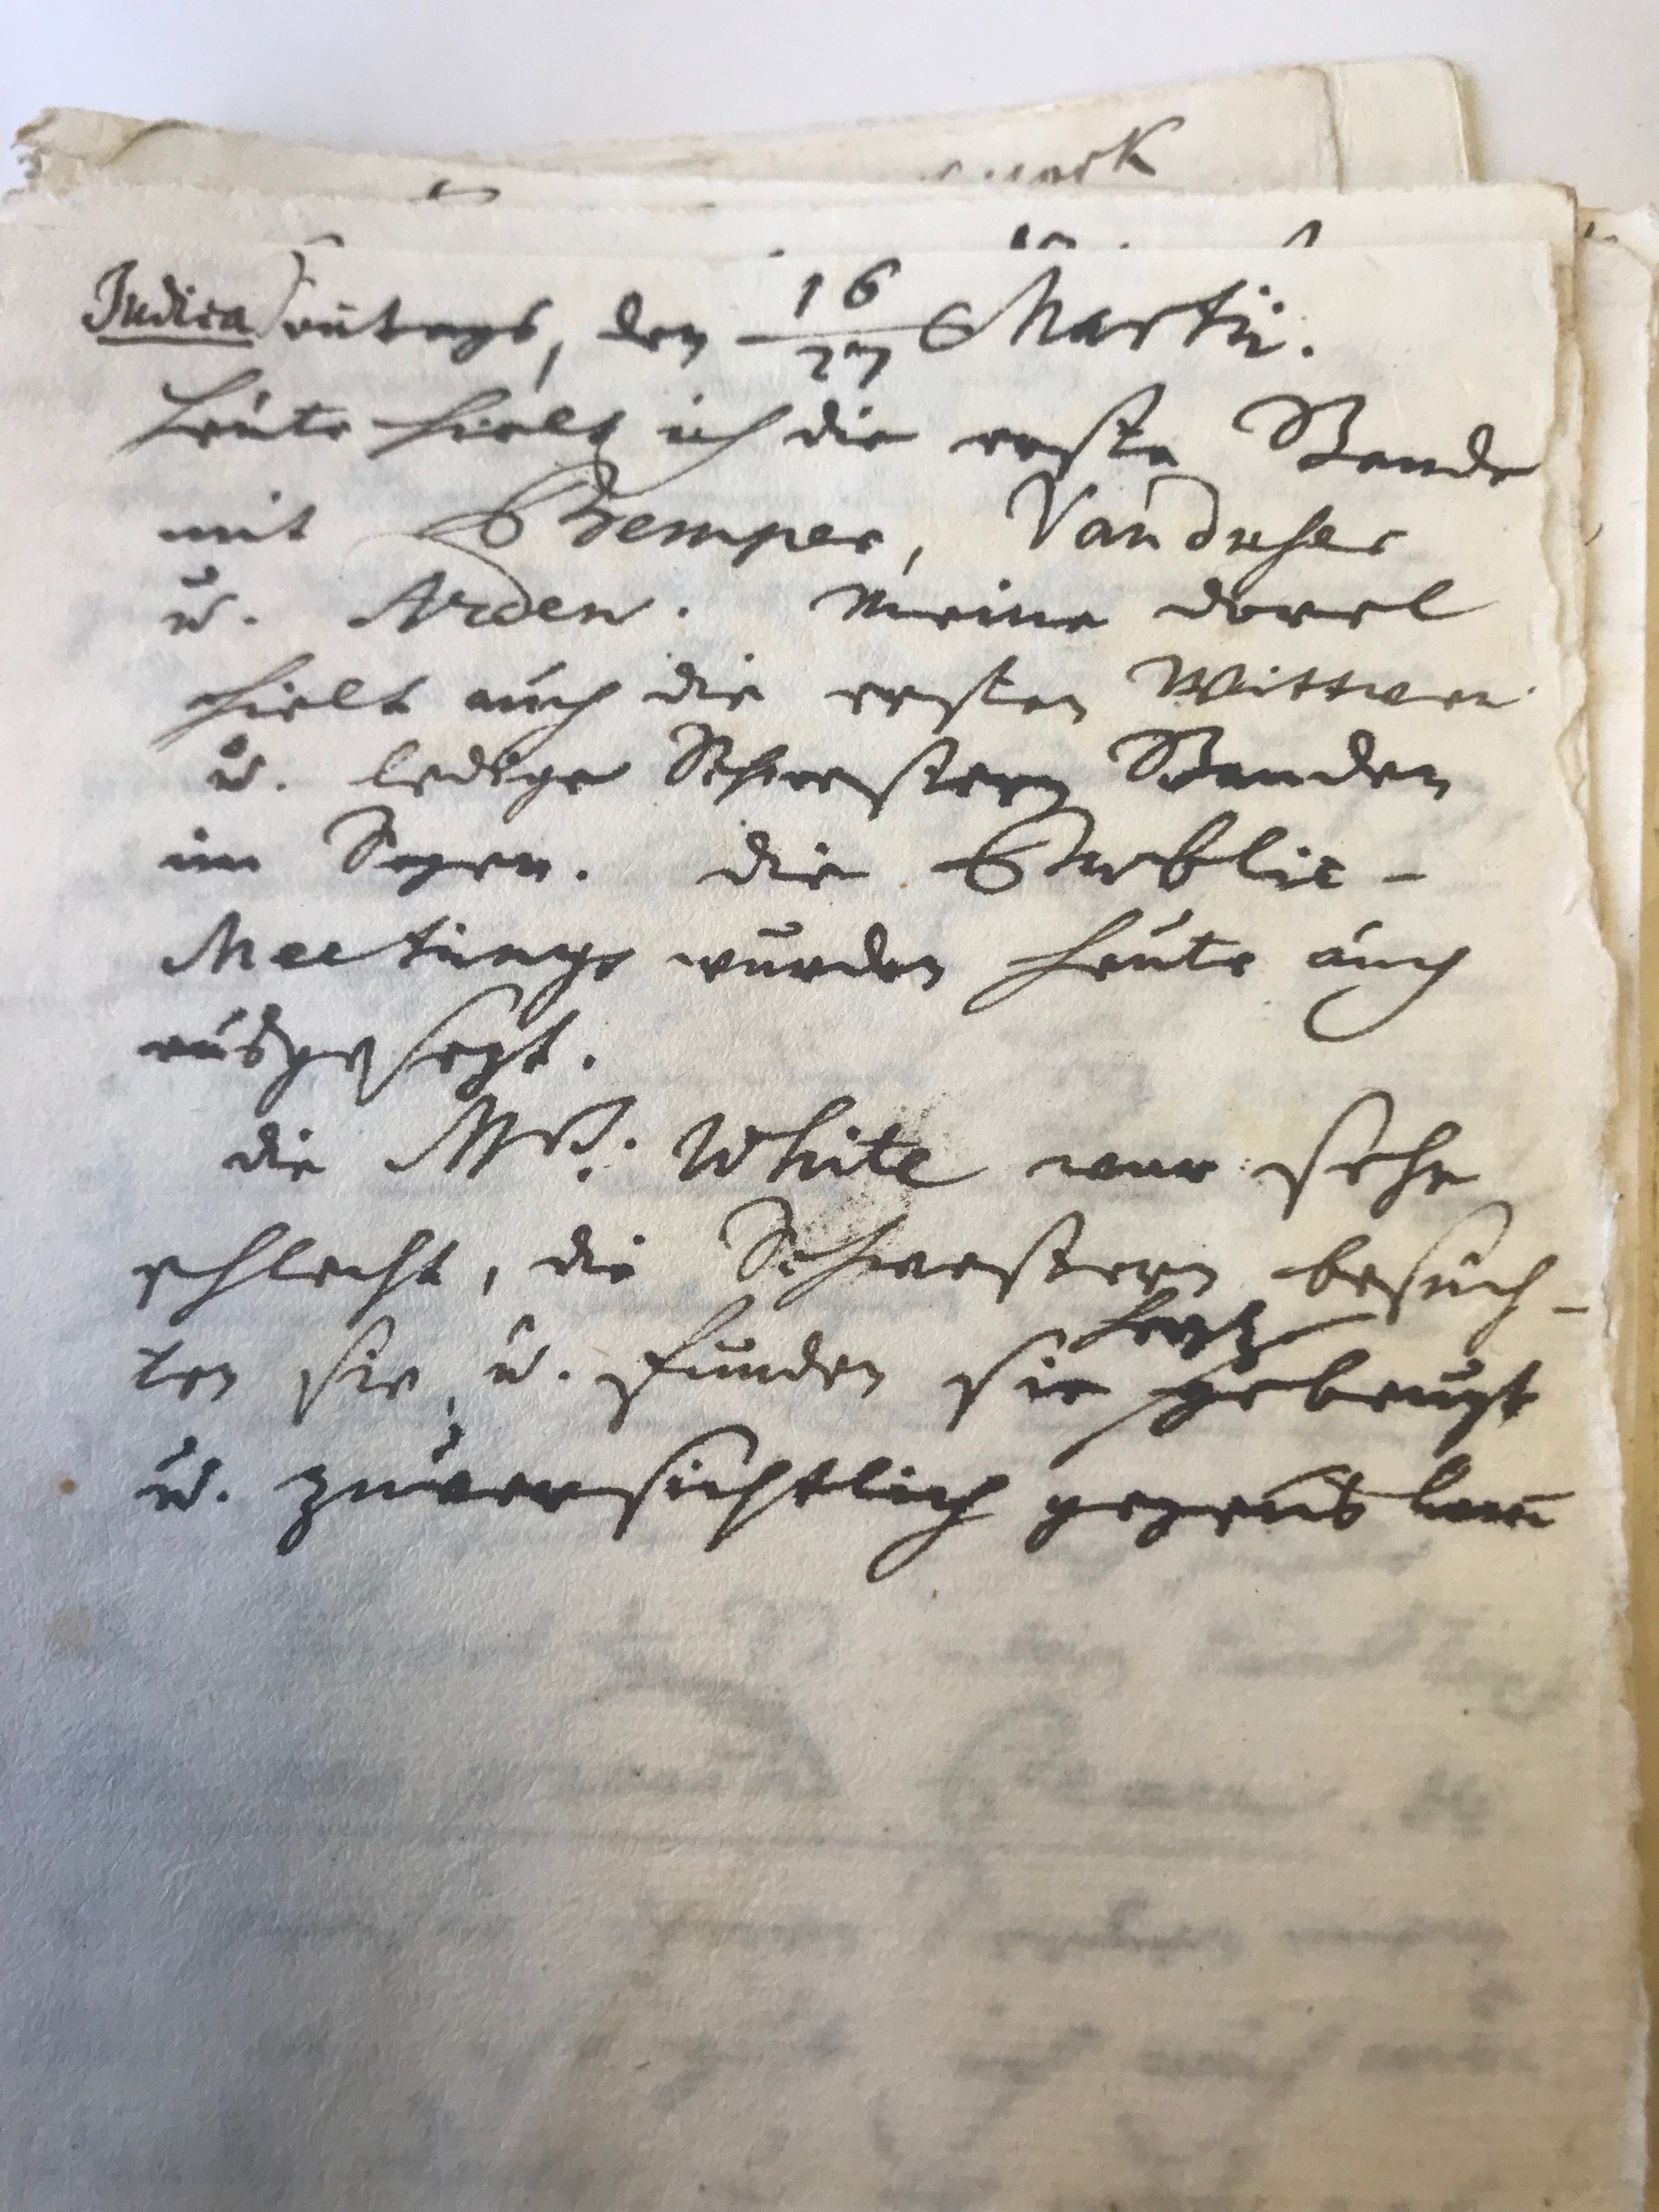 Judica Sontags, den 16/27 Martii.
heute hielt ich die erste Bande
mit Bemper, Vandeher
u. Arden. Meine dorel
hielt auch die ersten Wittwen
u. ledige Schwestern Banden
im Segen. die Public-
Meetings wurden heute auch
ausgesezt.
die Mrs. White war sehr
schlecht, die Schwestern besuch-
ten sie, u. funden sie herzl
gebeugt
u. zuversichtlich gegens Lam̄